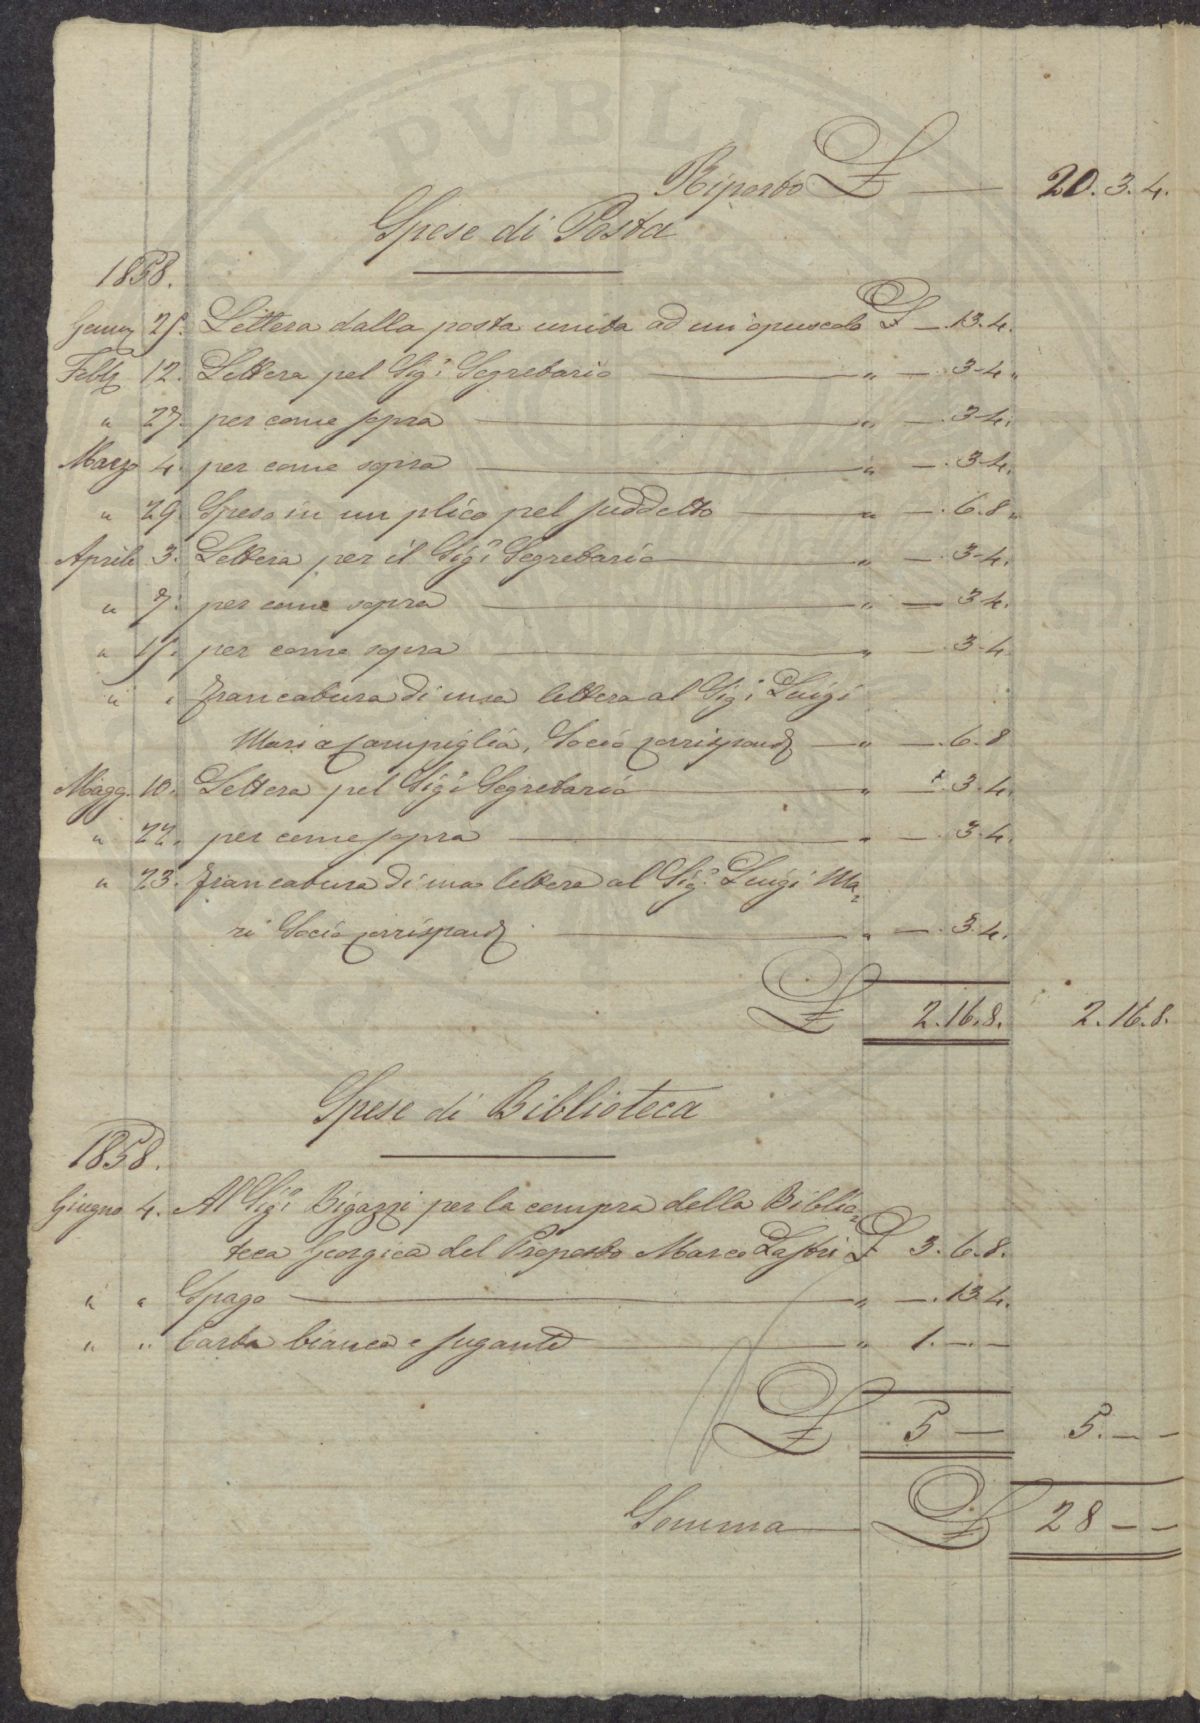 PVBLIC
Riporto £ — 20. 3. 4.
Spese di Posta
1858.
Genn. 25. Lettera dalla posta unita ad un opuscolo £ —. 13. 4.
Febb. 12. Lettera pel Sig.r Segretario — " —. 3. 4.
" 27. per come sopra — " —. 3. 4.
Marzo 4. per come sopra — " —. 3. 4.
" 29. Speso in un plico pel suddetto — " —. 6. 8.
Aprile 3. Lettera per il Sig.r Segretario — " —. 3. 4.
" 7. per come sopra — " — 3. 4.
" 15. per come sopra — " —. 3. 4.
" " francatura di una lettera al Sig.r Luigi
Mari a Campiglia, Socio corrispond. — " —. 6. 8
Magg. 10. Lettera pel Sig.r Segretario — " —. 3. 4.
" 22. per come sopra — " —. 3. 4.
" 23. francatura di una lettera al Sig.r Luigi Ma=
ri Socio corrispond. — " —. 3. 4.
£ 2. 16. 8. 2. 16. 8.
Spese di Biblioteca
1858.
Giugno 4. Al Sig.r Bigazzi per la compra della Biblio=
teca Georgica del Proposto Marco Lastri £ 3. 6. 8.
" " Spago — " —. 13. 4.
" " Carta bianca e sugante — " 1. —. —
£ 5 — 5. — —
Somma — £ 28 — —